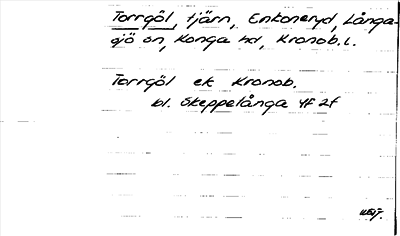 Torrgöl, tjärn, Enkoneryd, Långa-
sjö sn, Konga hd, Kronob. l.
Torrgöl ek Kronob.
bl. Skeppelånga 4F 2f